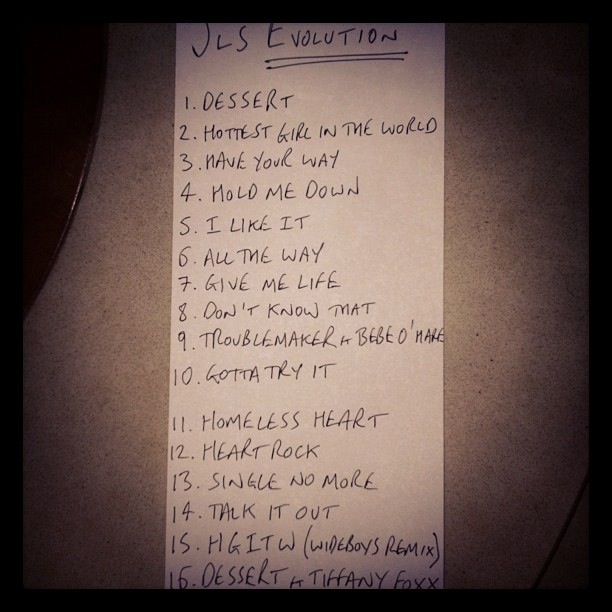 JLS EVOLUTION
1. DESSERT
2. HOTTEST GIRL IN THE WORLD
3. HAVE YOUR WAY
4. HOLD ME DOWN
5. I LIKE IT
6. ALL THE WAY
7. GIVE ME LIFE
8. DON'T KNOW THAT
9. TROUBLEMAKER ft BEBE O'HARE
10. GOTTA TRY IT
11. HOMELESS HEART
12. HEARTROCK
13. SINGLE NO MORE
14. TALK IT OUT
15. HGITW (WIDEBOYS REMIX)
16. DESSERT ft TIFFANY FOXX